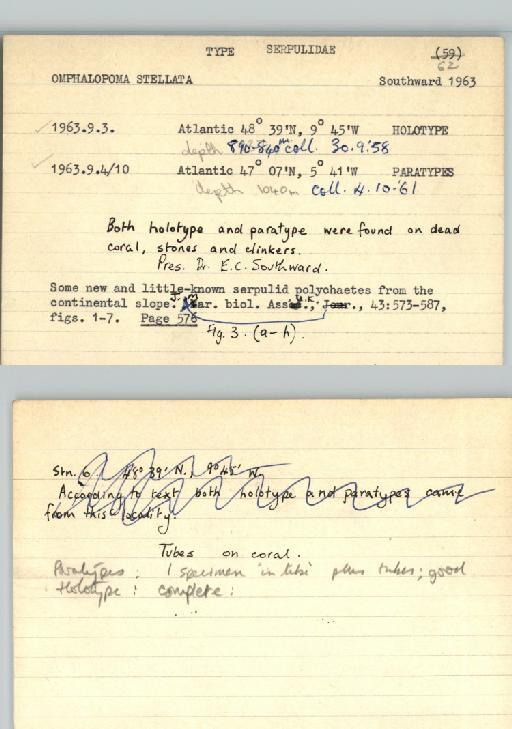 TYPE SERPULIDAE (59)
62
OMPHALOPOMA STELLATA Southward 1963
1963.9.3. Atlantic 48° 39'N, 9° 45'W HOLOTYPE
depth 890-840m coll. 30.9.'58
1963.9.4/10 Atlantic 47° 07'N, 5° 41'W PARATYPES
depth 1040m coll. 4.10.'61
Both holotype and paratype were found on dead
coral, stones and clinkers.
Pres. Dr. E.C. Southward.
Some new and little-known serpulid polychaetes from the
continental slope. J. Mar. biol. Ass. U.K., Jour., 43:573-587,
figs. 1-7. Page 578
Fig. 3. (a-h).
Stn. 6. 48° 39' N., 9° 45' W.
According to text both holotype and paratypes came
from this locality.
Tubes on coral.
Paratypes: 1 specimen in tube plus tubes; good
Holotype: complete: